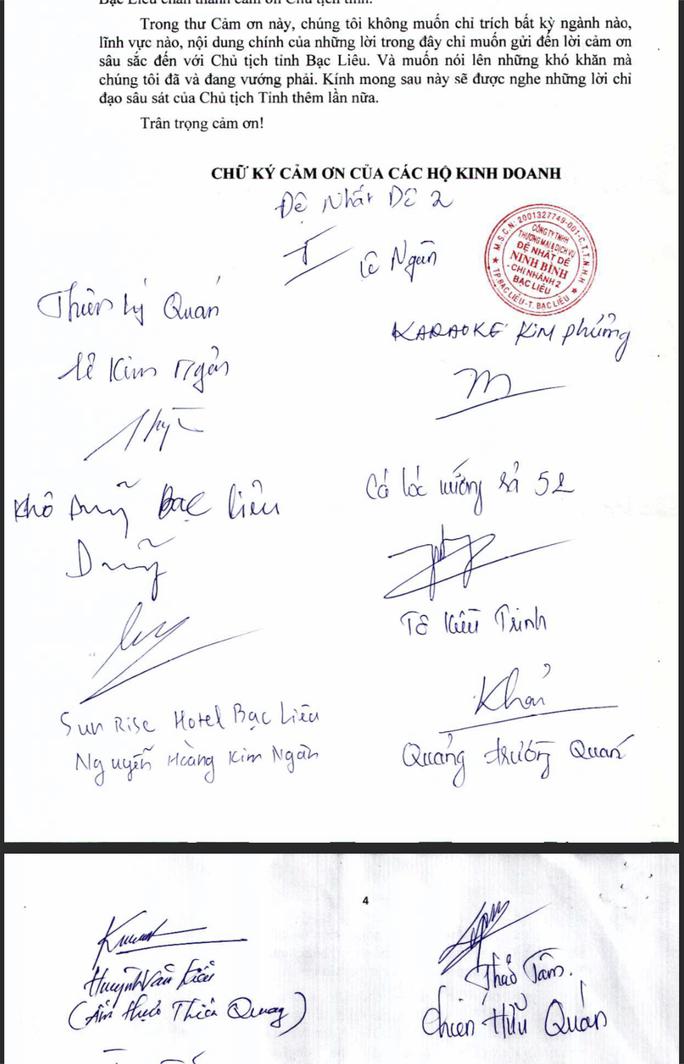 Bạc Liêu chân thành cảm ơn Chủ tịch tỉnh.
Trong thư Cảm ơn này, chúng tôi không muốn chỉ trích bất kỳ ngành nào,
lĩnh vực nào, nội dung chính của những lời trong đây chỉ muốn gửi đến lời cảm ơn
sâu sắc đến với Chủ tịch tỉnh Bạc Liêu. Và muốn nói lên những khó khăn mà
chúng tôi đã và đang vướng phải. Kính mong sau này sẽ được nghe những lời chỉ
đạo sâu sát của Chủ tịch Tỉnh thêm lần nữa.
Trân trọng cảm ơn!
CHỮ KÝ CẢM ƠN CỦA CÁC HỘ KINH DOANH
Đệ Nhất Dê 2
Lê Ngân
M.S.C.N: 2001327749-001-C.T.T.N.H.H
CÔNG TY TNHH
THƯƠNG MẠI & DỊCH VỤ
ĐỆ NHẤT DÊ
NINH BÌNH
- CHI NHÁNH 2
BẠC LIÊU
TP. BẠC LIÊU - T. BẠC LIÊU
Thiên Lý Quán
KARAOKE Kim Phụng
Lê Kim Ngân
Khô Duỹ Bạc Liêu
Cá lóc nướng số 52
Duỹ
Tô Kiều Trinh
Sun Rise Hotel Bạc Liêu
Nguyễn Hoàng Kim Ngân
Khải
Quảng trường Quán
4
Huỳnh Văn Kiều
(Ẩm thực Thiên Quang)
Thảo Tâm.
Chiến Hữu Quán